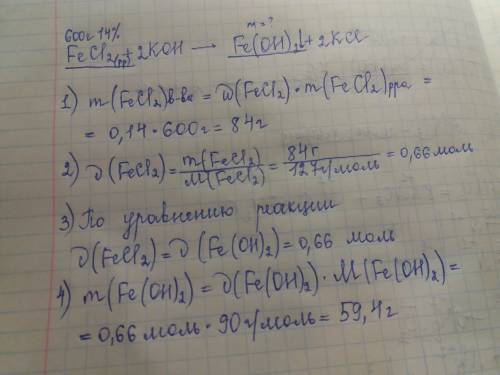 600г 14% m = ?
FeCl₂(рр) + 2KOH → Fe(OH)₂↓ + 2KCl
1) m(FeCl₂)в-ва = ω(FeCl₂) · m(FeCl₂)рра =
= 0,14 · 600г = 84г
2) ν(FeCl₂) = m(FeCl₂)/M(FeCl₂) = 84г/127г/моль = 0,66 моль
3) По уравнению реакции
ν(FeCl₂) = ν(Fe(OH)₂) = 0,66 моль
4) m(Fe(OH)₂) = ν(Fe(OH)₂) · M(Fe(OH)₂) =
= 0,66 моль · 90 г/моль = 59,4г